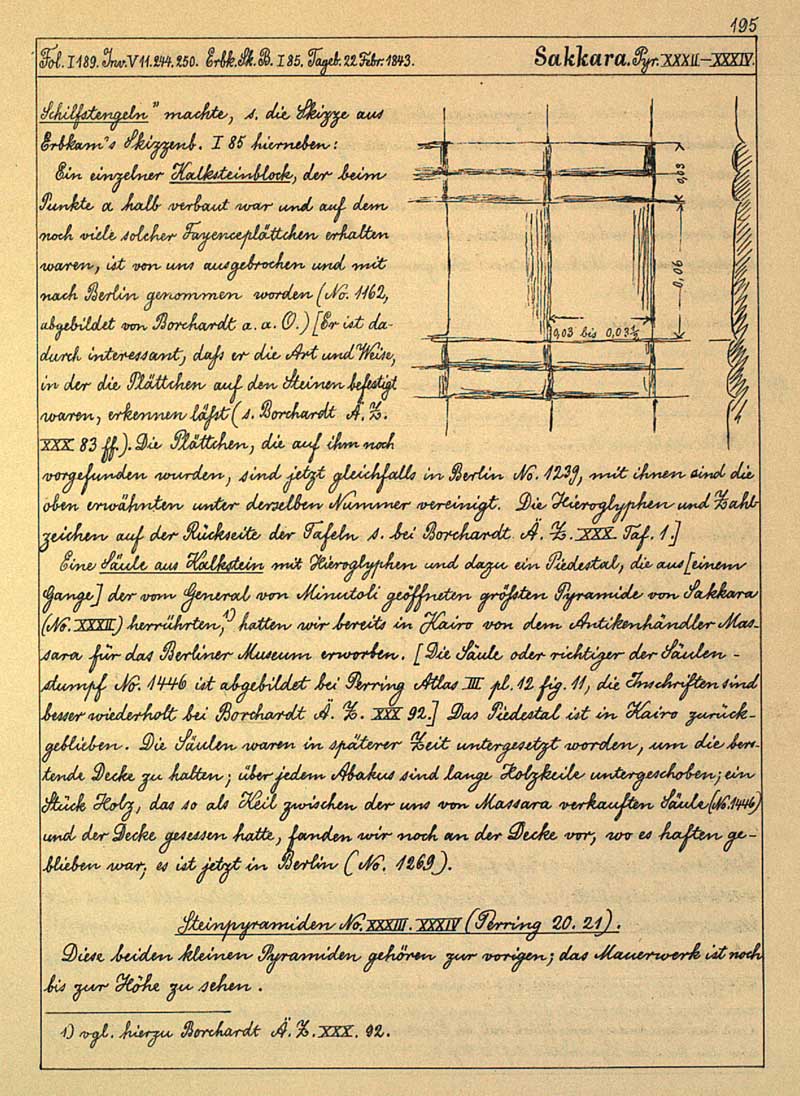 195
Fol. I 189. Inv. V 11. 244. 250. Erbk. Sk. B. I 85. Tageb. 22 Febr. 1843. Sakkara. Pyr. XXXII–XXXIV.
Schilfstengeln" machte, s. die Skizze aus
Erbkam's Skizzenb. I 85 hierneben:
Ein einzelner Kalksteinblock, der beim
Punkte a halb verbaut war und auf dem
noch viele solcher Fayenceplättchen erhalten
waren, ist von uns ausgebrochen und mit
nach Berlin genommen worden (No. 1162,
abgebildet von Borchardt a. a. O.) [Er ist da-
durch interessant, dafs er die Art und Weise,
in der die Plättchen auf den Steinen befestigt
waren, erkennen läfst (s. Borchardt Ä. Z.
XXX 83 ff.). Die Plättchen, die auf ihm noch
0,03
0,06
0,03 bis 0,03½
vorgefunden wurden, sind jetzt gleichfalls in Berlin No. 1239, mit ihnen sind die
oben erwähnten unter derselben Nummer vereinigt. Die Hieroglyphen und Zahl-
zeichen auf der Rückseite der Tafeln s. bei Borchardt Ä. Z. XXX. Taf. 1.]
Eine Säule aus Kalkstein mit Hieroglyphen und dazu ein Piedestal, die aus [einem
Gange] der vom General von Minutoli geöffneten gröfsten Pyramide von Sakkara
(No. XXXII) herrührten,1) hatten wir bereits in Kairo von dem Antikenhändler Mas-
sara für das Berliner Museum erworben. [Die Säule oder richtiger der Säulen-
stumpf No. 1446 ist abgebildet bei Perring Atlas III pl. 12 fig. 11, die Inschriften sind
besser wiederholt bei Borchardt Ä. Z. XXX 92.] Das Piedestal ist in Kairo zurück-
geblieben. Die Säulen waren in späterer Zeit untergesetzt worden, um die bers-
tende Decke zu halten; über jedem Abakus sind lange Holzkeile untergeschoben; ein
Stück Holz, das so als Keil zwischen der uns von Massara verkauften Säule (No. 1446)
und der Decke gesessen hatte, fanden wir noch an der Decke vor, wo es haften ge-
blieben war; es ist jetzt in Berlin (No. 1269).
Steinpyramiden No. XXXIII. XXXIV (Perring 20. 21).
Diese beiden kleinen Pyramiden gehören zur vorigen; das Mauerwerk ist noch
bis zur Höhe zu sehen.
1) vgl. hierzu Borchardt Ä. Z. XXX. 92.